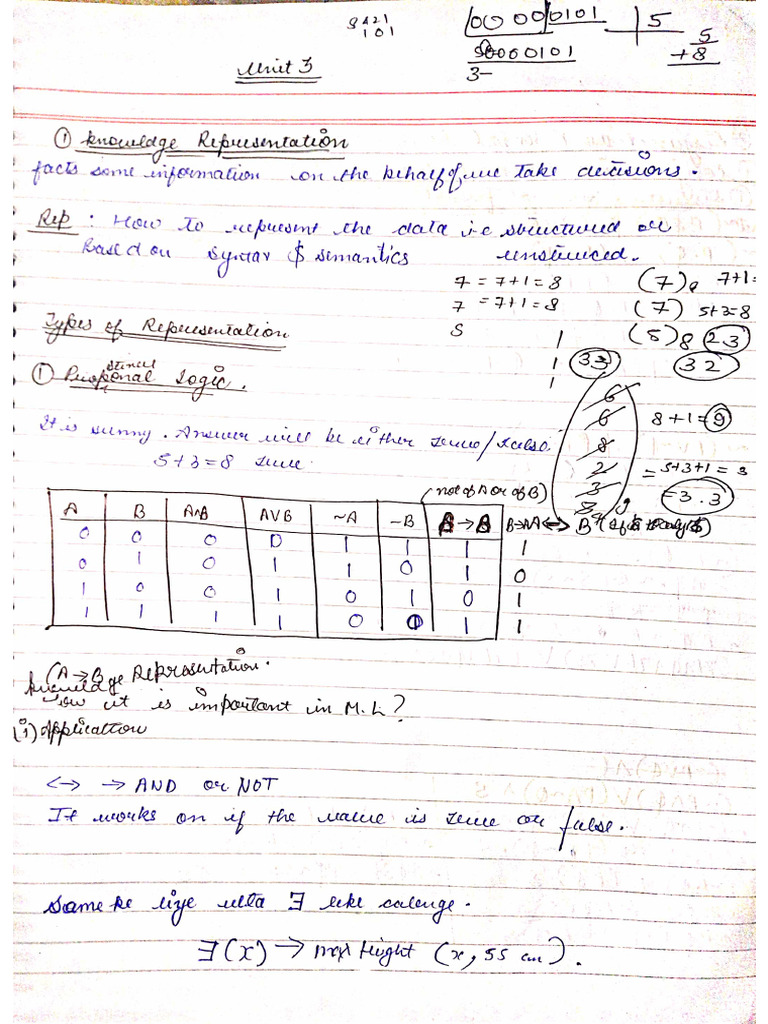 8421
101
00 000101 | 5
0000101
3-
5
+8
Unit 3
① Knowledge Representation
facts some information on the behalf of, we take decisions.
Rep : How to represent the data i.e structured or
Based on syntax & semantics
7 = 7+1 = 8
(7)
7+1=
7 = 7+1 = 8
(7) 5+3=8
Types of Representation
5
1
(5)8 23
1
33
32
1
① Logic.
6
6
8+1=9
It is sunny. Answer will be either
8
5+3=8
2
= 5+3+1 =
3
=3.3
(not of A or of B)
A B A∧B A∨B ~A ~B B→A
0 0 0 0 1 1 1 1
0 1 0 1 1 0 1 0
1 0 0 1 0 1 0 1
1 1 1 1 0 0 1 1
(A→B
Knowledge Representation.
How it is important in M.L?
(i) Application
<-> → AND or NOT
It works on if the value is or false.
Same ke liye ulta ∃ like
∃(x) → max height (x, 55 cm).